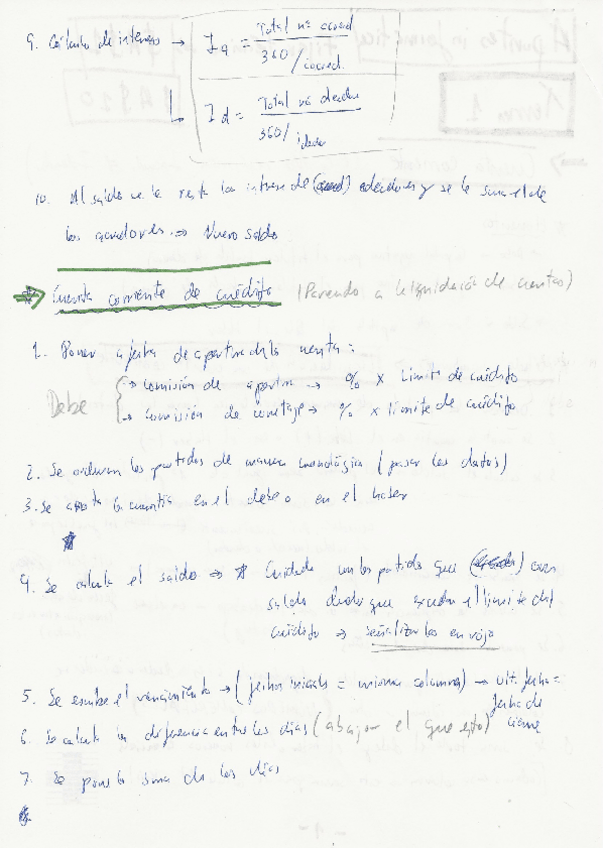 9. Cálculo de intereses → Ia = Total nº acreed
360/iacreed.
↳ Id = Total nº deudor
360/ideudor
10. Al saldo se le resta los intereses de deudores y se le suma el de
los acreedores → Nuevo saldo
Cuenta corriente de crédito (Parecido a la liquidación de cuentas)
1. Poner de apertura de la cuenta:
Debe
→ Comisión de apertura → % x límite de crédito
→ Comisión de corretaje → % x límite de crédito
2. Se ordenan las partidas de manera cronológica (pasar los datos)
3. Se anota la cuantía en el debe o en el haber
4. Se calcula el saldo → * Cuidado con las partidas que con
saldo deudor que excedan el límite del
crédito → señalizarlos en rojo
5. Se escribe el vencimiento → (fechas iniciales = misma columna) → ult. fecha =
fecha de
cierre
6. Se calcula la diferencia entre los días (abajo el que esto)
7. Se pone la suma de los días